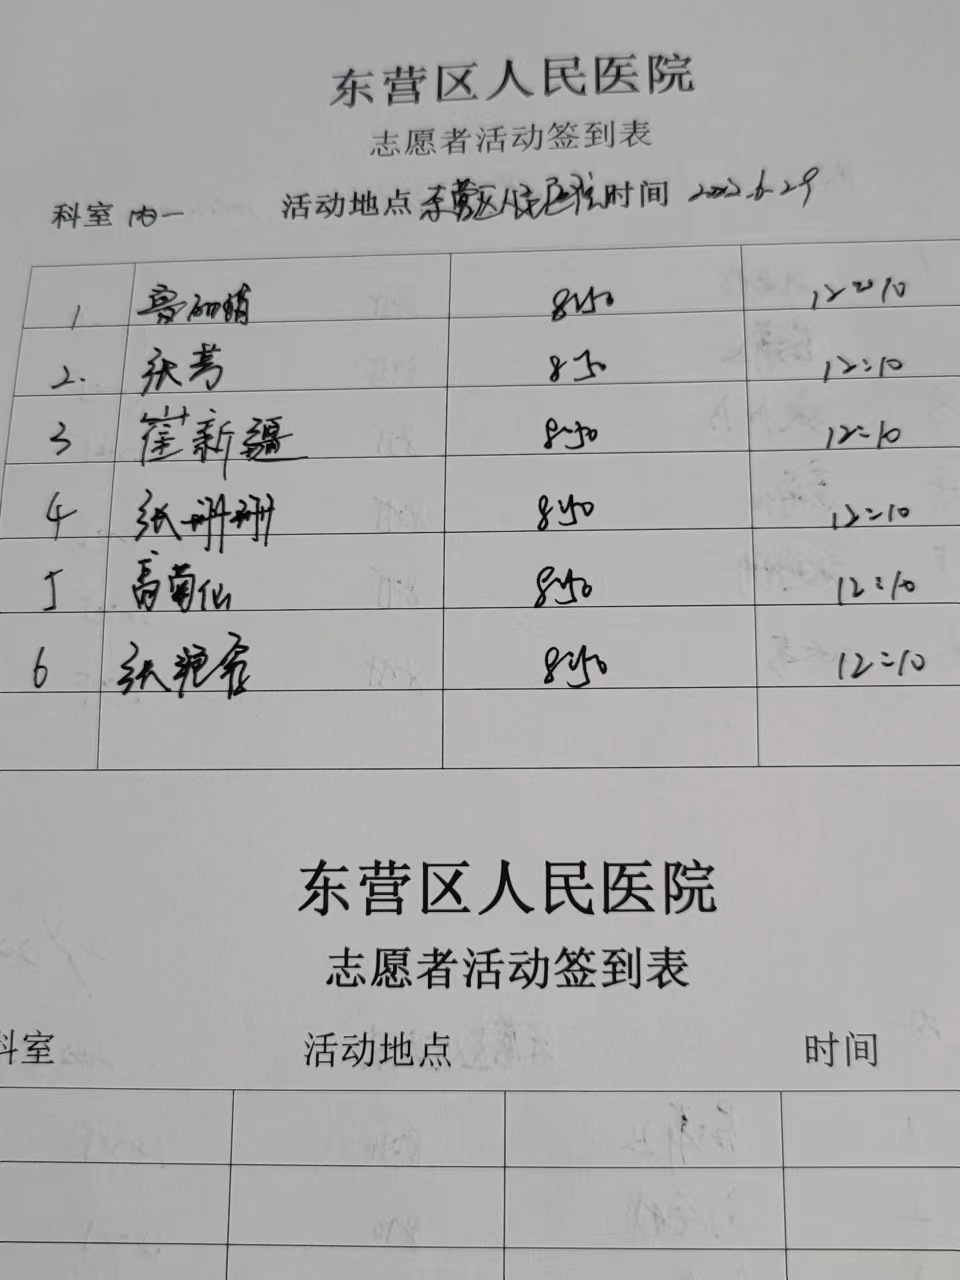 东营区人民医院
志愿者活动签到表
科室 内一 活动地点 东营区人民医院 时间 2022.6.29
1 8:50 12:10
2. 张芳 8:50 12:10
3 崔新疆 8:50 12:10
4 张珊珊 8:50 12:10
5 高菊仙 8:50 12:10
6 张艳 8:50 12:10
东营区人民医院
志愿者活动签到表
科室 活动地点 时间